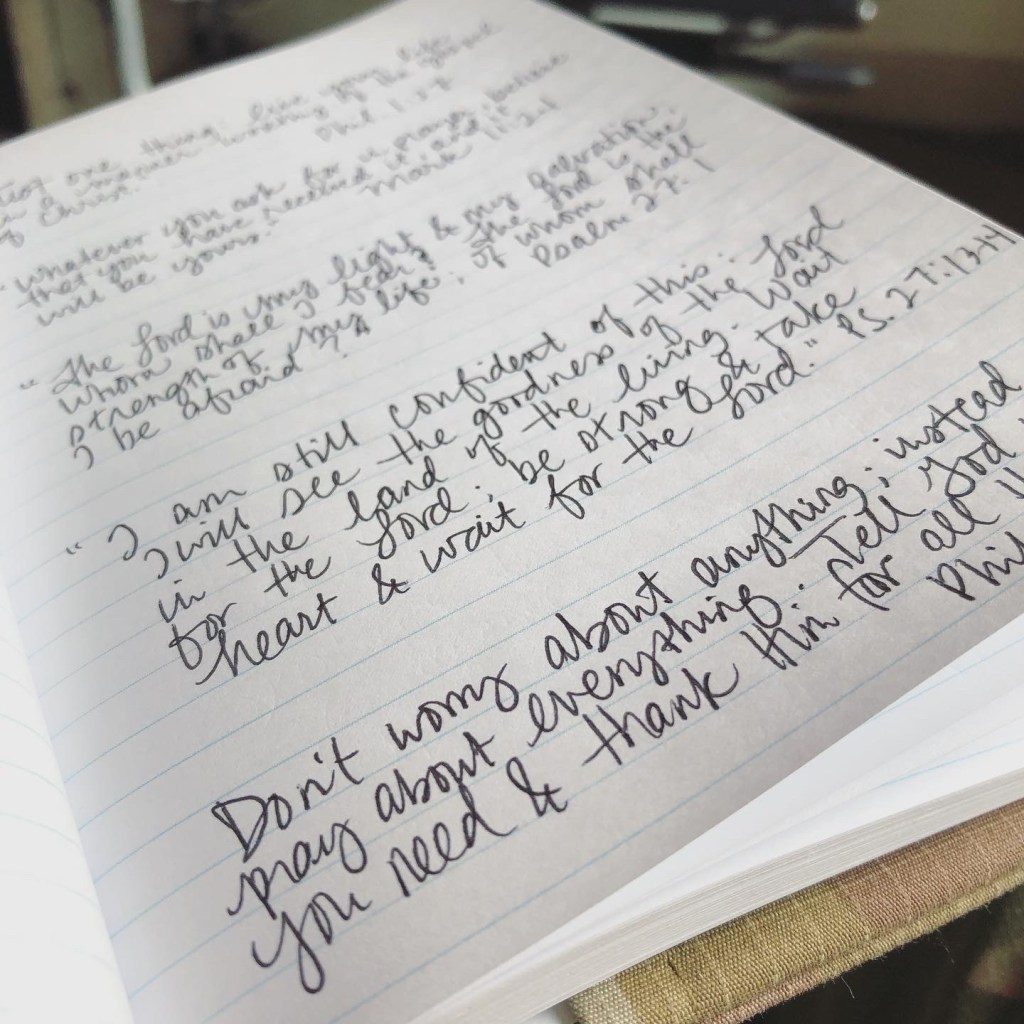 one thing: live your life
in a manner worthy of the gospel
of Christ. Phil. 1:27
"Whatever you ask for in prayer, believe
that you have received it and it
will be yours." Mark 11:24
"The Lord is my light & my salvation;
whom shall I fear? The Lord is the
strength of my life; of whom shall
I be afraid? Psalm 27:1
"I am still confident of this:
I will see the goodness of the Lord
in the land of the living. Wait
for the Lord; be strong & take
heart & wait for the Lord." Ps. 27:13+14
Don't worry about anything; instead
pray about everything. Tell God
you need & thank Him for all
Phil